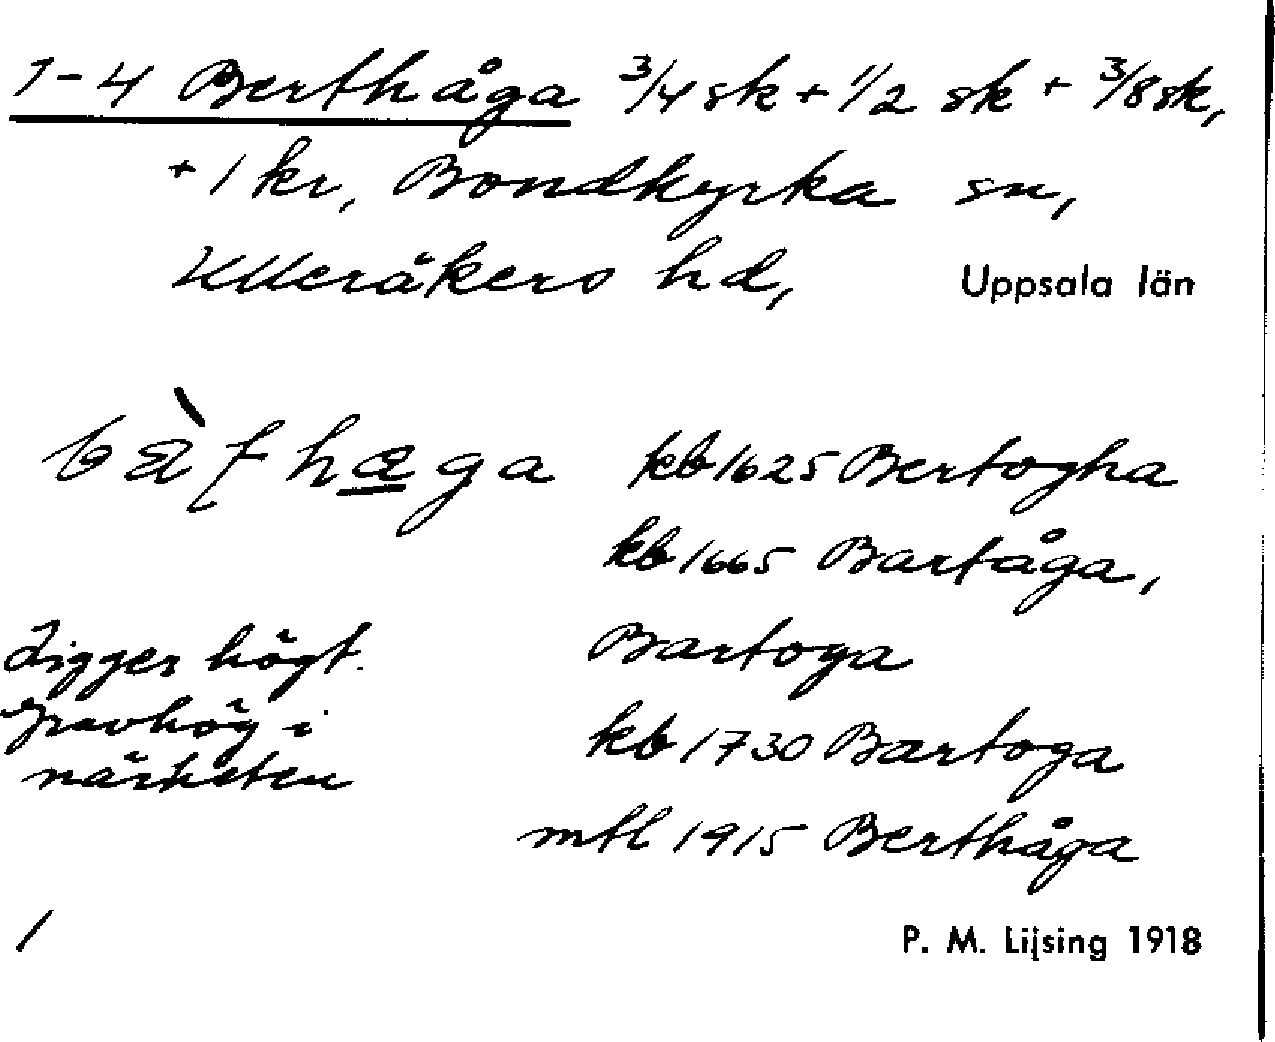 1-4 Berthåga 3/4 sk + 1/2 sk + 3/8 sk,
+ 1 kr, Bondkyrka sn,
Ulleråkers hd, Uppsala län
kb 1625 Bertogha
kb 1665 Bartåga,
Ligger högt. Bartoga
Gravhög i kb 1730 Bartoga
närheten
mtl 1915 Berthåga
/ P. M. Lijsing 1918